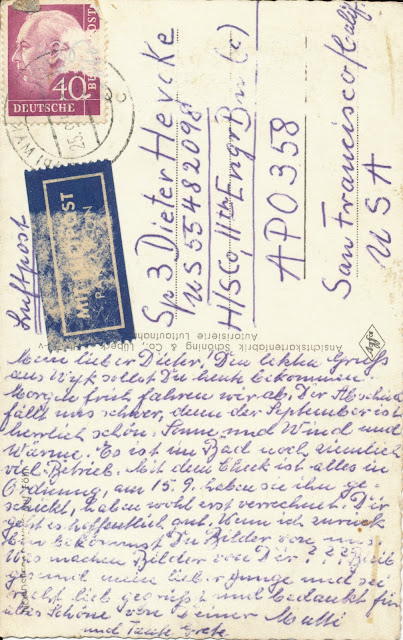 40
DEUTSCHE
BUNDESPOST
Luftpost
MIT LUFTPOST
PAR AVION
Sp3 Dieter Hevcke
US 55482098
H/SCo, 11th Engr Bn (c)
APO 358
San Francisco/Calif.
USA
Ansichtskartenfabrik Schöning & Co., Lübeck
Autorisierte Luftaufnahme
Agfa
Mein lieber Dieter! Den letzten Gruß
aus Wyk sollst Du heute bekommen.
Morgen früh fahren wir ab. Der Abschied
fällt uns schwer, denn der September ist
herrlich schön. Sonne und Wind und
Wärme. Es ist im Bad noch ziemlich
viel Betrieb. Mit dem Check ist alles in
Ordnung, am 15.9. haben sie ihn ge-
schickt, haben wohl erst verrechnet. Dir
geht es hoffentlich gut. Wenn ich zurück
bin bekommst Du Bilder von uns.
Was machen Bilder von Dir???? Bleib
gesund mein lieber Junge und sei
recht lieb gegrüßt und bedankt für
alles Schöne von Deiner Mutti
und Tante Grete.